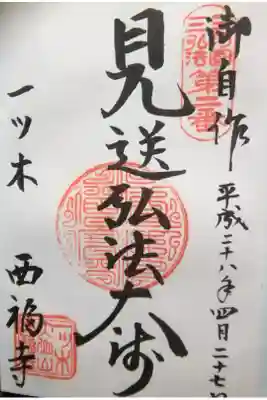 御自作
平成二十八年四月二十七日
三弘法第二番
見送弘法大師
一ツ木 西福寺